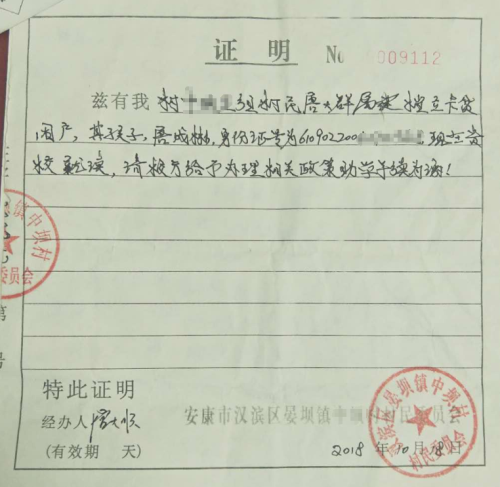 证明 No 009112
兹有我 村十组村民唐大群属建档立卡贫
困户，其孩子，唐成 ，身份证号为61090220 ，现在贵
校就读，请校方给予办理相关政策助学手续为谢！
特此证明
经办人
安康市汉滨区晏坝镇中坝村村民委员会
(有效期 天)
2018年10月18日
汉滨区晏坝镇中坝村
村民委员会
镇中坝村
委员会
第
号